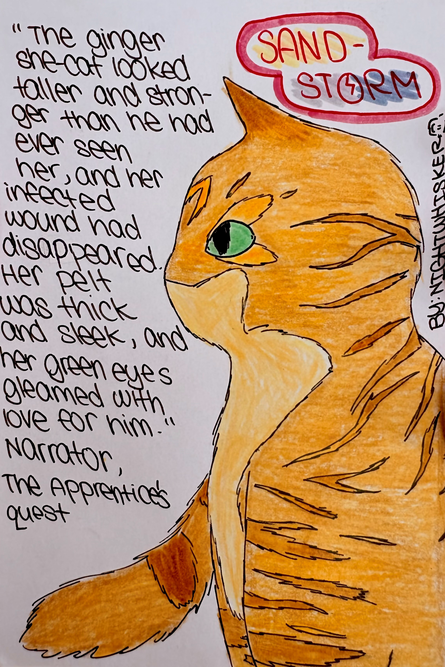 "The ginger
she-cat looked
taller and stron-
ger than he had
ever seen
her, and her
infected
wound had
disappeared.
Her pelt
was thick
and sleek, and
her green eyes
gleamed with
love for him."
Narrator,
The Apprentice's
quest
SAND-
STORM
By: NIGHTWHISKER